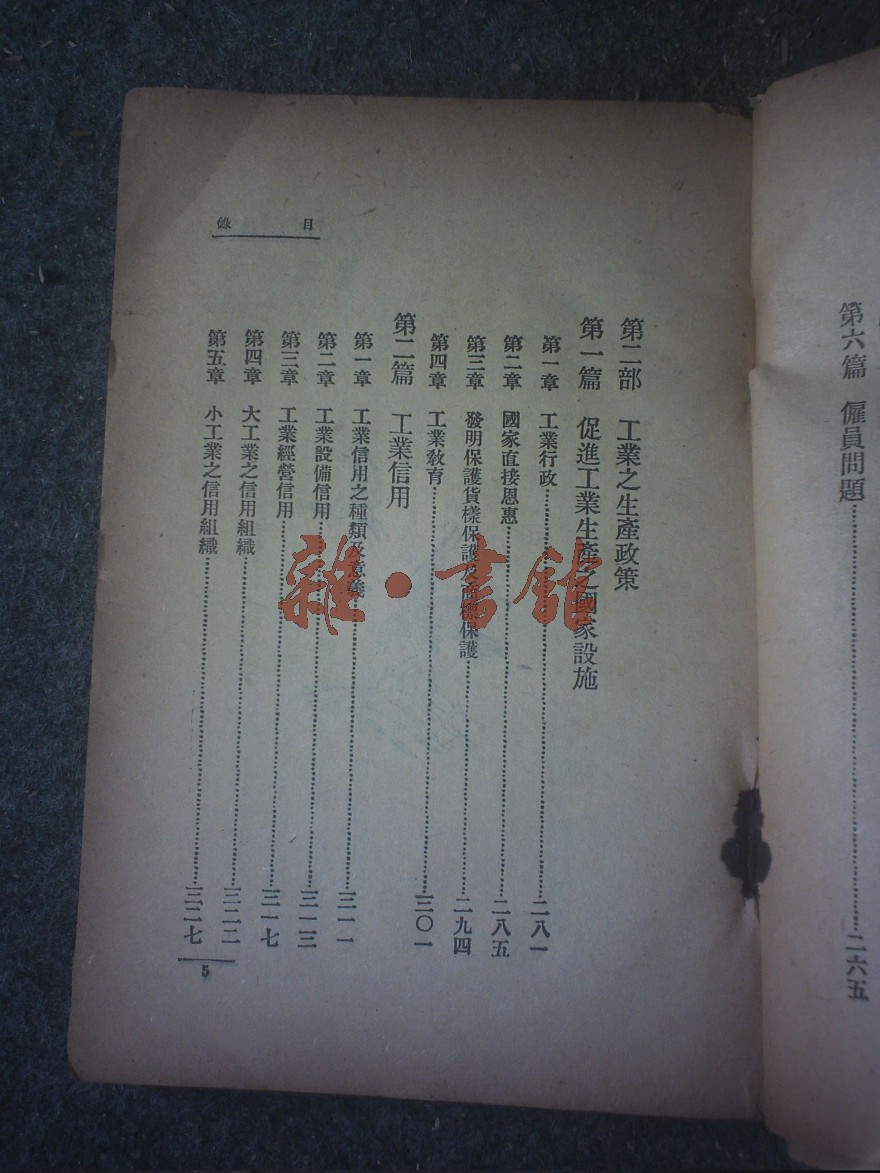 第六篇 僱員問題……二六五
目錄
第二部 工業之生產政策
第一篇 促進工業生產之國家設施
第一章 工業行政……二八一
第二章 國家直接恩惠……二八五
第三章 發明保護貨樣保護及商標保護……二九四
第四章 工業教育……三〇一
第二篇 工業信用
第一章 工業信用之種類及意義……三一一
第二章 工業設備信用……三一三
第三章 工業經營信用……三一七
第四章 大工業之信用組織……三二二
第五章 小工業之信用組織……三二七
5
雜·書館